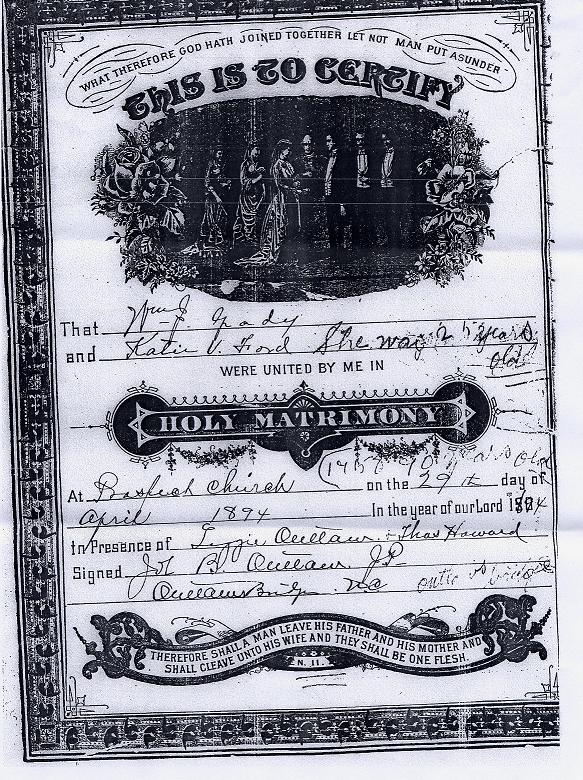 WHAT THEREFORE GOD HATH JOINED TOGETHER LET NOT MAN PUT ASUNDER
THIS IS TO CERTIFY
That Wm J Grady
and Katie V. Ford She was 25 years
old
WERE UNITED BY ME IN
HOLY MATRIMONY
years old
At church on the 29th day of
April 1894 In the year of our Lord 1894
In Presence of Lizzie Outlaw & Thos Howard
Signed Jos B. Outlaw J.P.
Outlaws Bridge NC outlaws bridge
THEREFORE SHALL A MAN LEAVE HIS FATHER AND HIS MOTHER AND
SHALL CLEAVE UNTO HIS WIFE AND THEY SHALL BE ONE FLESH.
N. 11.